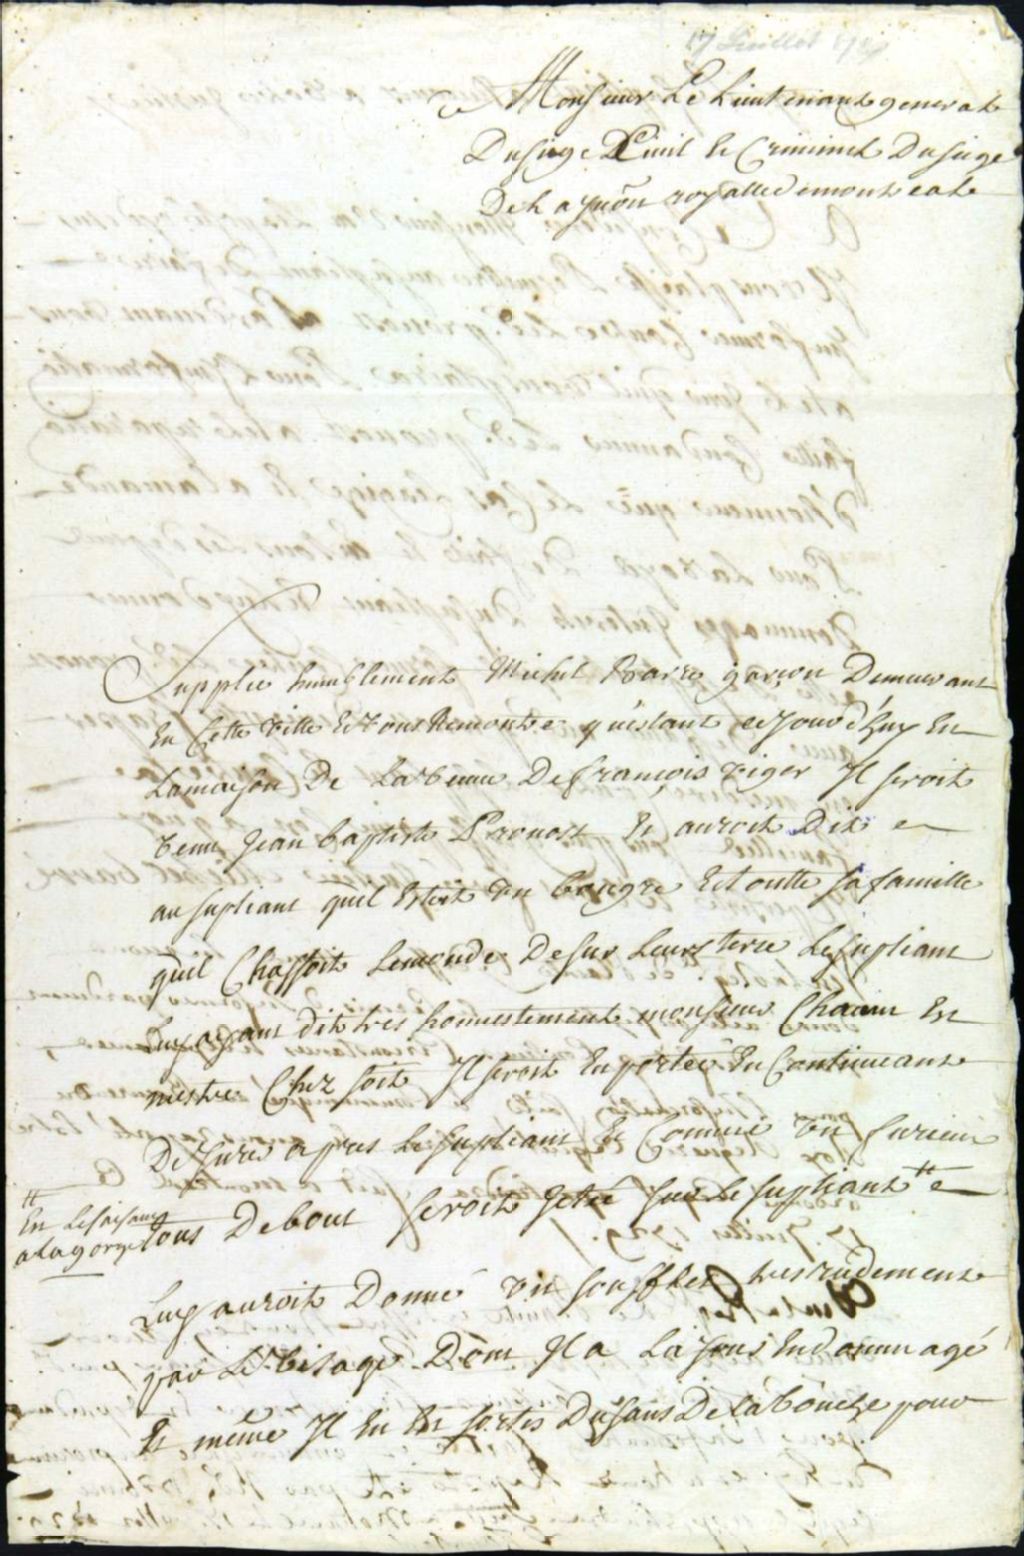 17 Juillet
A Monsieur Le Lieutenant general
Du siege Civil et Criminel Du siege
De la jurison royalle de montreal
Supplie humblement Michel Barré garçon Demeurant
En Cette ville Et vous Remontre qu'estant ce jourd'huy En
La maison De La veuve De françois viger Il seroit
venu Jean baptiste Prouost Et auroit Dit
au supliant quil Estoit un bougre Et toutte sa famille
quil Chassoit Lemonde De sur Leurs terre Le supliant
Luy ayant dit tres honnestement monsieur Chacun Est
mestre Chez soit Il seroit Emportée En Continuant
De jurer apres Le supliant Et Comme un furieux
tous Debout seroit jetté sur Le supliant
En Le saisant
a la gorge
Luy auroit Donné un soufflet tres rudement
par Le visage Dont Il a La joue Endommagé
Et même Il En Est sortis Du sans De la bouche pour